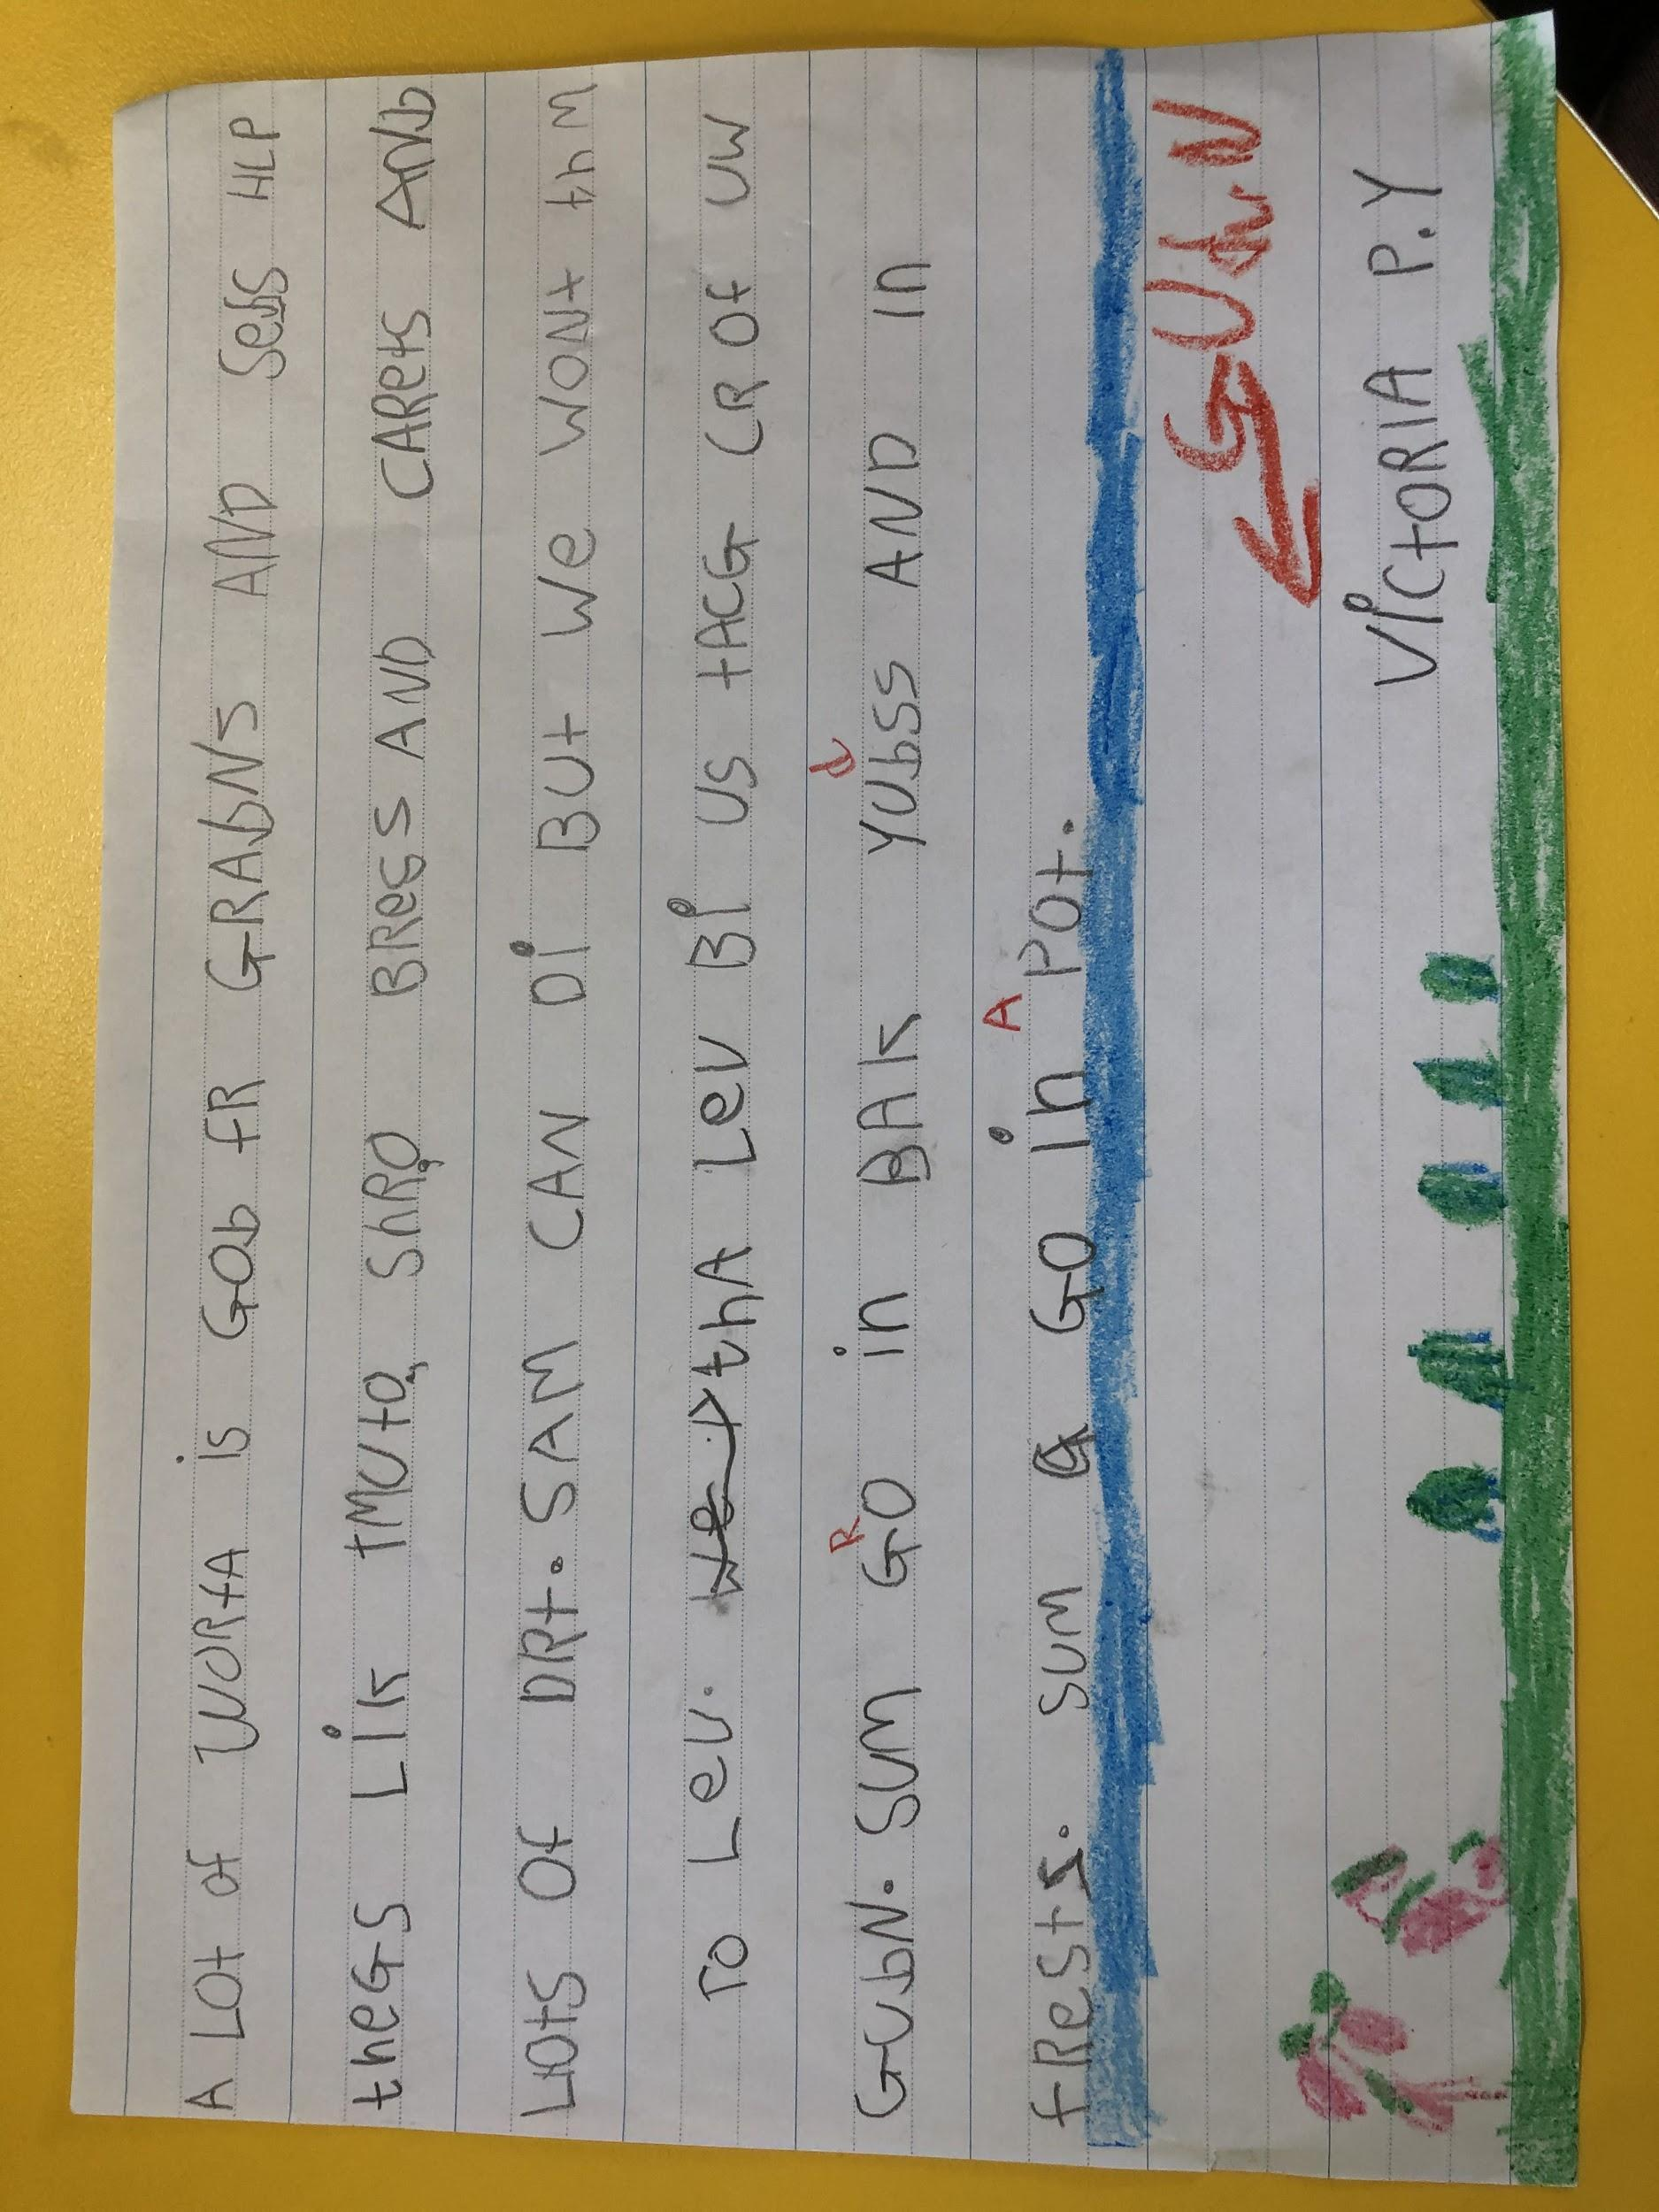 A LOt Of WORtA is GOb fR GRAbNS AND SebS HLP
theGS Lik TMUtO, ShRO, BReSS AND CARetS ANb
LOtS Of DRt. SAM CAN Di BUt We WONt thM
TO LeV. thA LeV Bi US tACG CR Of UW
GUbN. SUM GRO in BAk YUbSS AND In
fReStS. SUM GO in A POt.
GUbN
VictORIA P.Y